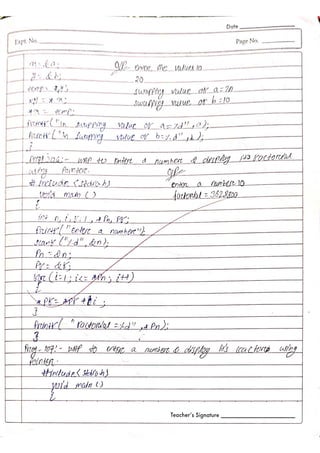 Date
Expt. No.
Page No.
x = &a;
O/P- enter the values 10
y = &b;
20
temp = *x;
swapping value of a = 20
*x = *y;
swapping value of b = 10
*y = temp;
Printf("\n swapping value of a=%d",a);
Printf("\n swapping value of b=%d",b);
}
Prog. 106:- WAP to enter a number & display its factorial
using Pointer.
O/P-
# include <stdio.h>
enter a number 10
void main ()
factorial = 3628800
{
int n, i, f=1, *Pn, *Pf;
Printf("enter a number");
scanf ("%d", &n);
Pn = &n;
Pf = &f;
for (i=1; i<= *Pn; i++)
{
*Pf = *Pf * i ;
}
Printf( "factorial =%d", *Pf);
}
Prog. 107:- WAP to enter a number & display it's factorial using
Pointer.
#include<stdio.h>
void main ()
{
Teacher's Signature